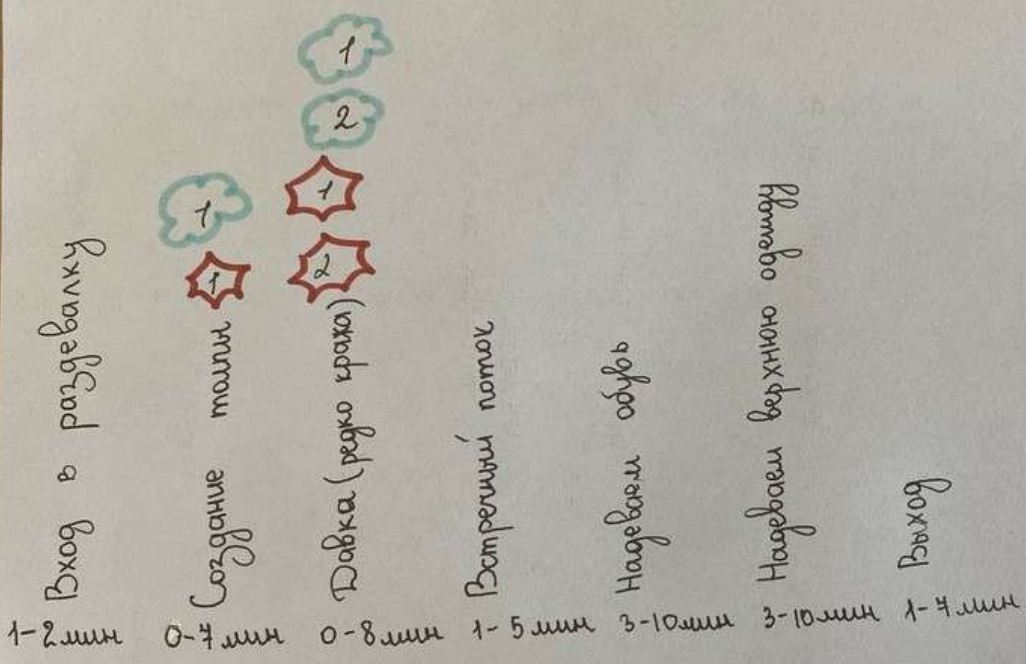 Вход в раздевалку
1-2 мин
1
1
Создание толпы
0-7 мин
1
2
1
2
Давка (редко кража)
0-8 мин
Встречный поток
1-5 мин
Надеваем обувь
3-10 мин
Надеваем верхнюю одежду
3-10 мин
Выход
1-7 мин